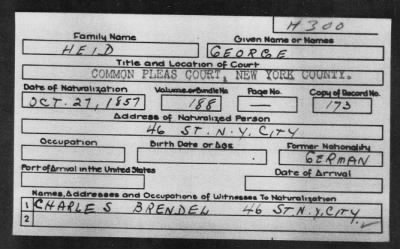 H 300
Family Name Given Name or Names
HEID GEORGE
Title and Location of Court
COMMON PLEAS COURT, NEW YORK COUNTY.
Date of Naturalization Volume or Bundle No Page No. Copy of Record No.
OCT. 27, 1857 188 — 173
Address of Naturalized Person
46 ST. N.Y. CITY
Occupation Birth Date or Age Former Nationality
GERMAN
Port of Arrival in the United States Date of Arrival
Names, Addresses and Occupations of Witnesses To Naturalization
1 CHARLES BRENDEL 46 ST N.Y. CITY
2